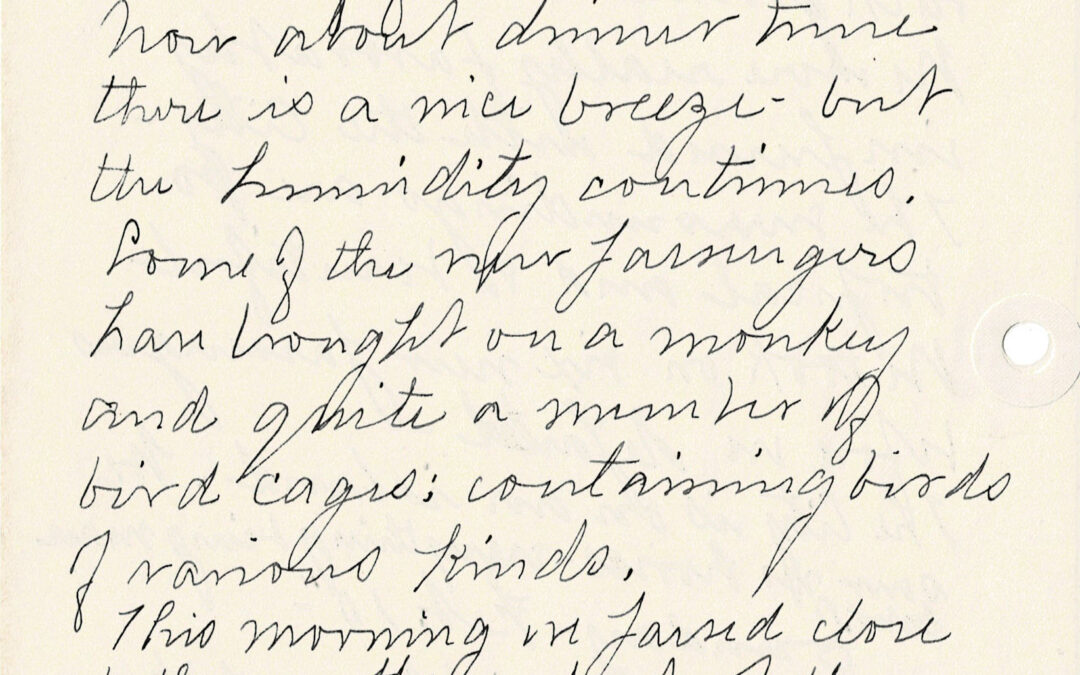 Now about dinner time
there is a nice breeze - but
the humidity continues.
Some of the new passengers
have brought on a monkey
and quite a number of
bird cages; containing birds
of various kinds.
This morning we passed close